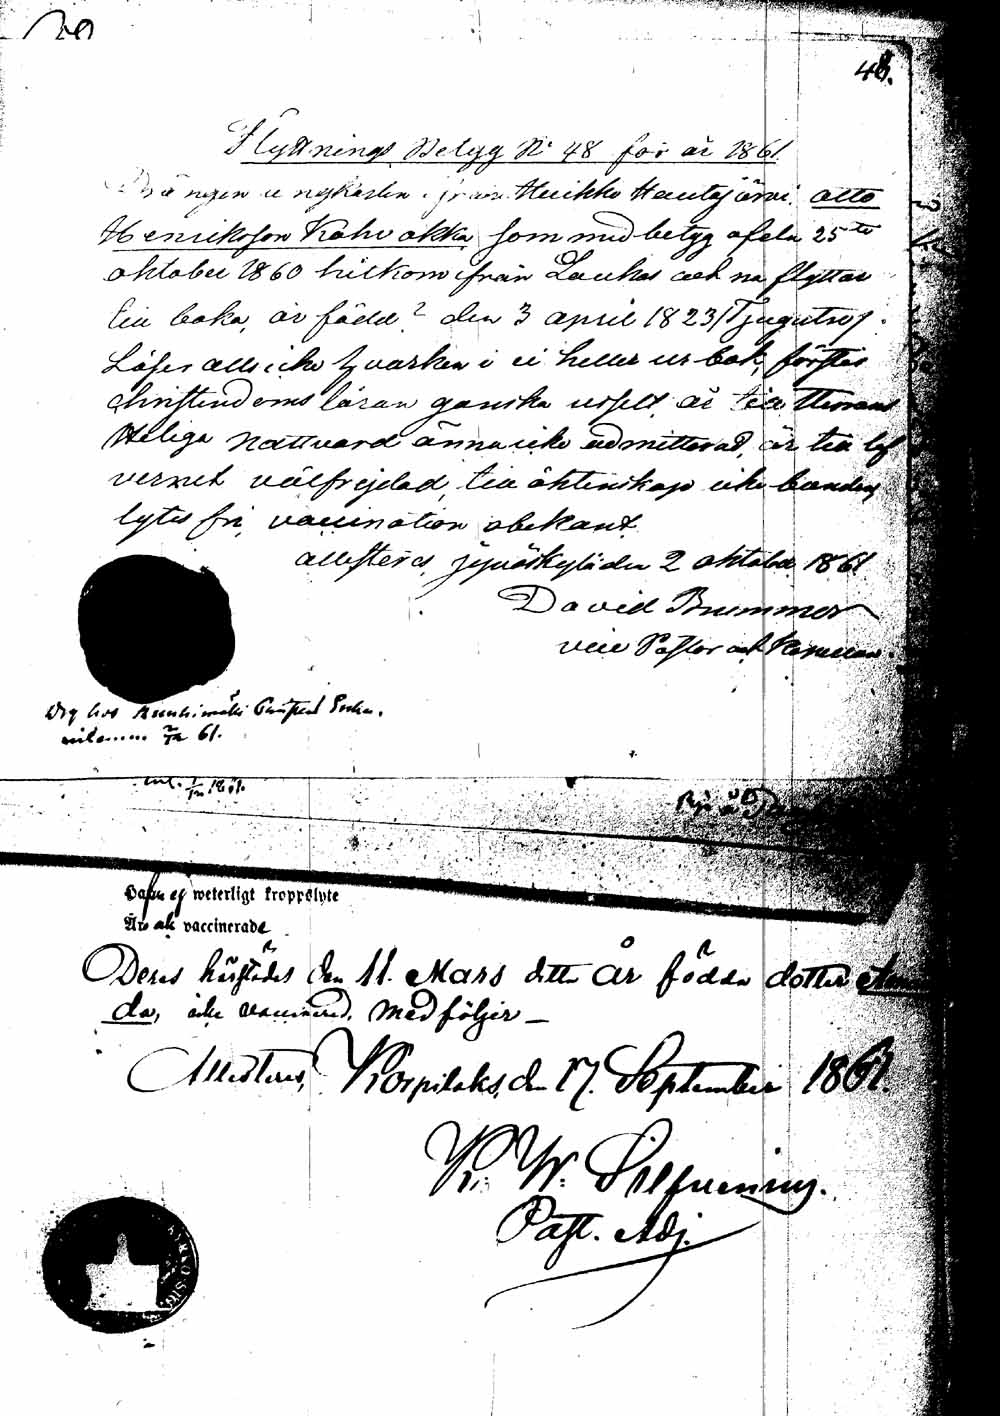 48.
Flyttnings Betyg No 48 för år 1861
Drängen ungkarlen från Huikko Hautajärvi, Otto
Henriksson Kahvakka som med betyg afden 25te
oktober 1860 hitkom från Laukas och nu flyttar
till boka, är född? den 3 april 1823/Tjugutre/.
Läser alls icke hvarken i ei heller ur bok, förstår
christendoms läran ganska usselt, är till Herrans
Heliga Nattvard ännu icke admitterad, är till lef
vernet välfrejdad, till äktenskap icke bunden,
lytes fri, vaccination obekant.
attesteras, Jyväskylä den 2 oktober 1861
David Brummer
vice Pastor och Kapellan.
61.
Hafva ej weterligt kroppslyte
Äro ak vaccinerade
Deras härstädes den 11. Mars detta År födda dotter Aman
da, icke vaccinered, medföljer –
Attesteras, Korpilaks, den 17. September 1861.
K. W. Silfvenius.
Past. Adj.